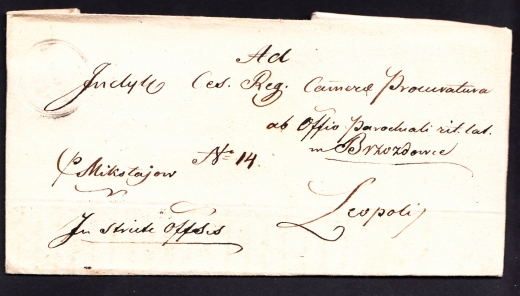 Ad
Inclyt Ces. Reg. Camere Procuratura
ab Offio Parochiali rit. lat.
in Brzozdowce
p Mikołajow No 14.
Leopoli
In stricte Offosis